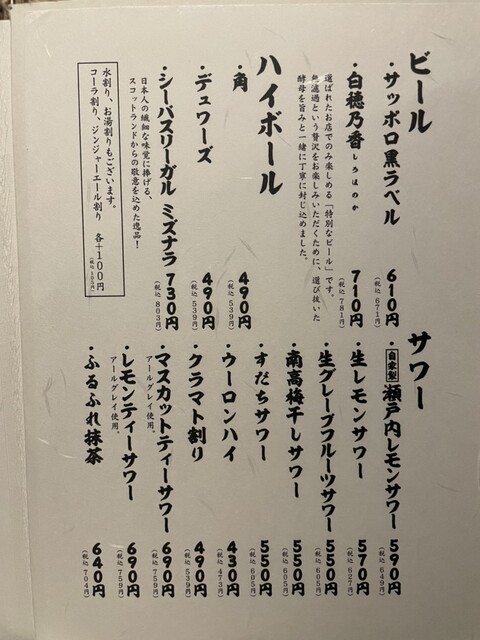 ビール
・サッポロ黒ラベル 610円
(税込 671円)
・白穂乃香 しろほのか 710円
(税込 781円)
選ばれたお店でのみ楽しめる「特別なビール」です。
無濾過という贅沢をお楽しみいただくために、選び抜いた
酵母を旨みと一緒に丁寧に封じ込めました。
ハイボール
・角 490円
(税込 539円)
・デュワーズ 490円
(税込 539円)
・シーバスリーガル ミズナラ 730円
(税込 803円)
日本人の繊細な味覚に捧げる、
スコットランドからの敬意を込めた逸品!
水割り、お湯割りもございます。
コーラ割り、ジンジャーエール割り 各+100円
(税込 110円)
サワー
・自家製 瀬戸内レモンサワー 590円
(税込 649円)
・生レモンサワー 570円
(税込 627円)
・生グレープフルーツサワー 550円
(税込 605円)
・南高梅干しサワー 550円
(税込 605円)
・すだちサワー 550円
(税込 605円)
・ウーロンハイ 430円
(税込 473円)
・クラマト割り 490円
(税込 539円)
・マスカットティーサワー 690円
(税込 759円)
アールグレイ使用。
・レモンティーサワー 690円
(税込 759円)
アールグレイ使用。
・ふるふれ抹茶 640円
(税込 704円)